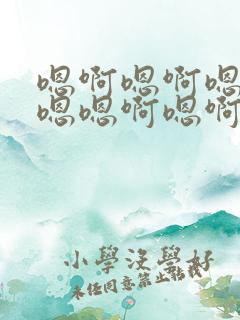 嗯啊嗯啊嗯
嗯嗯啊嗯啊
小學沒學好
未经同意禁止転載